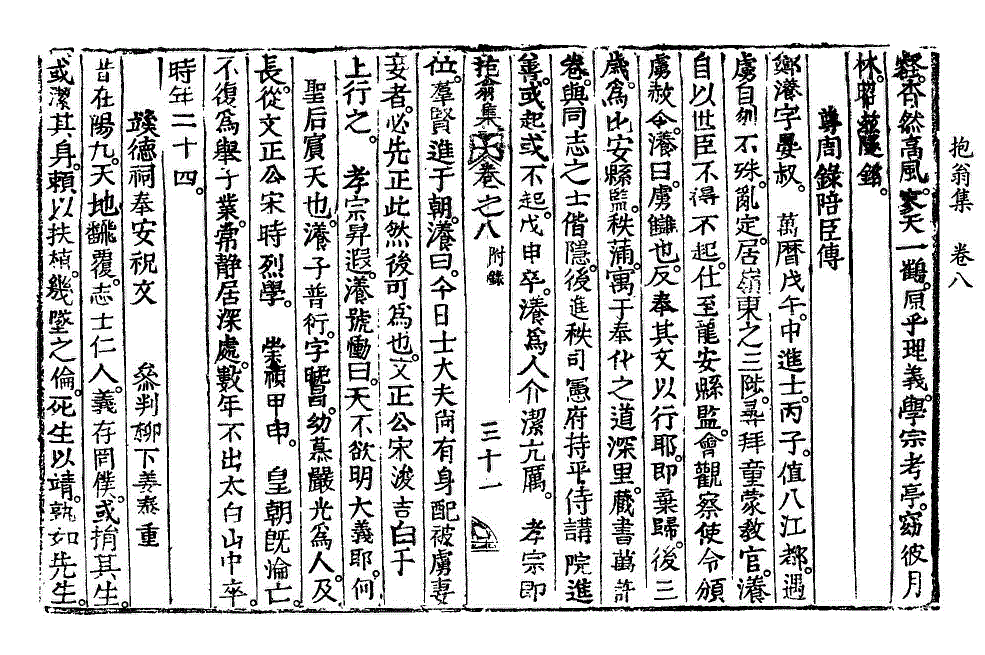 抱翁集 卷八
然高風。寥天一鶴。原乎理義。學宗考亭。窈彼月
林。昭玆隧銘。
尊周錄陪臣傳
鄭瀁字晏叔。 萬曆戊午。中進士。丙子。值入江都。遇
虜自刎不殊。亂定。居嶺東之三陟。尋拜童蒙敎官。瀁
自以世臣不得不起。仕至龍安縣監。會觀察使令頒
虜赦令。瀁曰。虜讎也。反奉其文以行耶。卽棄歸。後三
歲。爲比安縣監。秩滿。寓于奉化之道深里。藏書萬許
卷。與同志之士偕隱。後進秩司憲府持平,侍講院進
善。或起或不起。戊申卒。瀁爲人介潔亢厲。 孝宗卽
抱翁集 卷之八 附錄 三十一
位。羣賢進于朝。瀁曰。今日士大夫尙有身配被虜妻
妾者。必先正此然後可爲也。文正公宋浚吉白于
上行之。 孝宗昇遐。瀁號慟曰。天不欲明大義耶。何
聖后賓天也。瀁子普衍。字。幼慕嚴光爲人。及
長。從文正公宋時烈學。 崇禎甲申。 皇朝旣淪亡。
不復爲擧子業。常靜居深處。數年不出太白山中。卒
時年二十四。
德祠奉安祝文 參判柳下義泰重
昔在陽九。天地飜覆。志士仁人。義存罔僕。或捐其生。
或潔其身。賴以扶植。幾墜之倫。死生以靖。孰如先生。